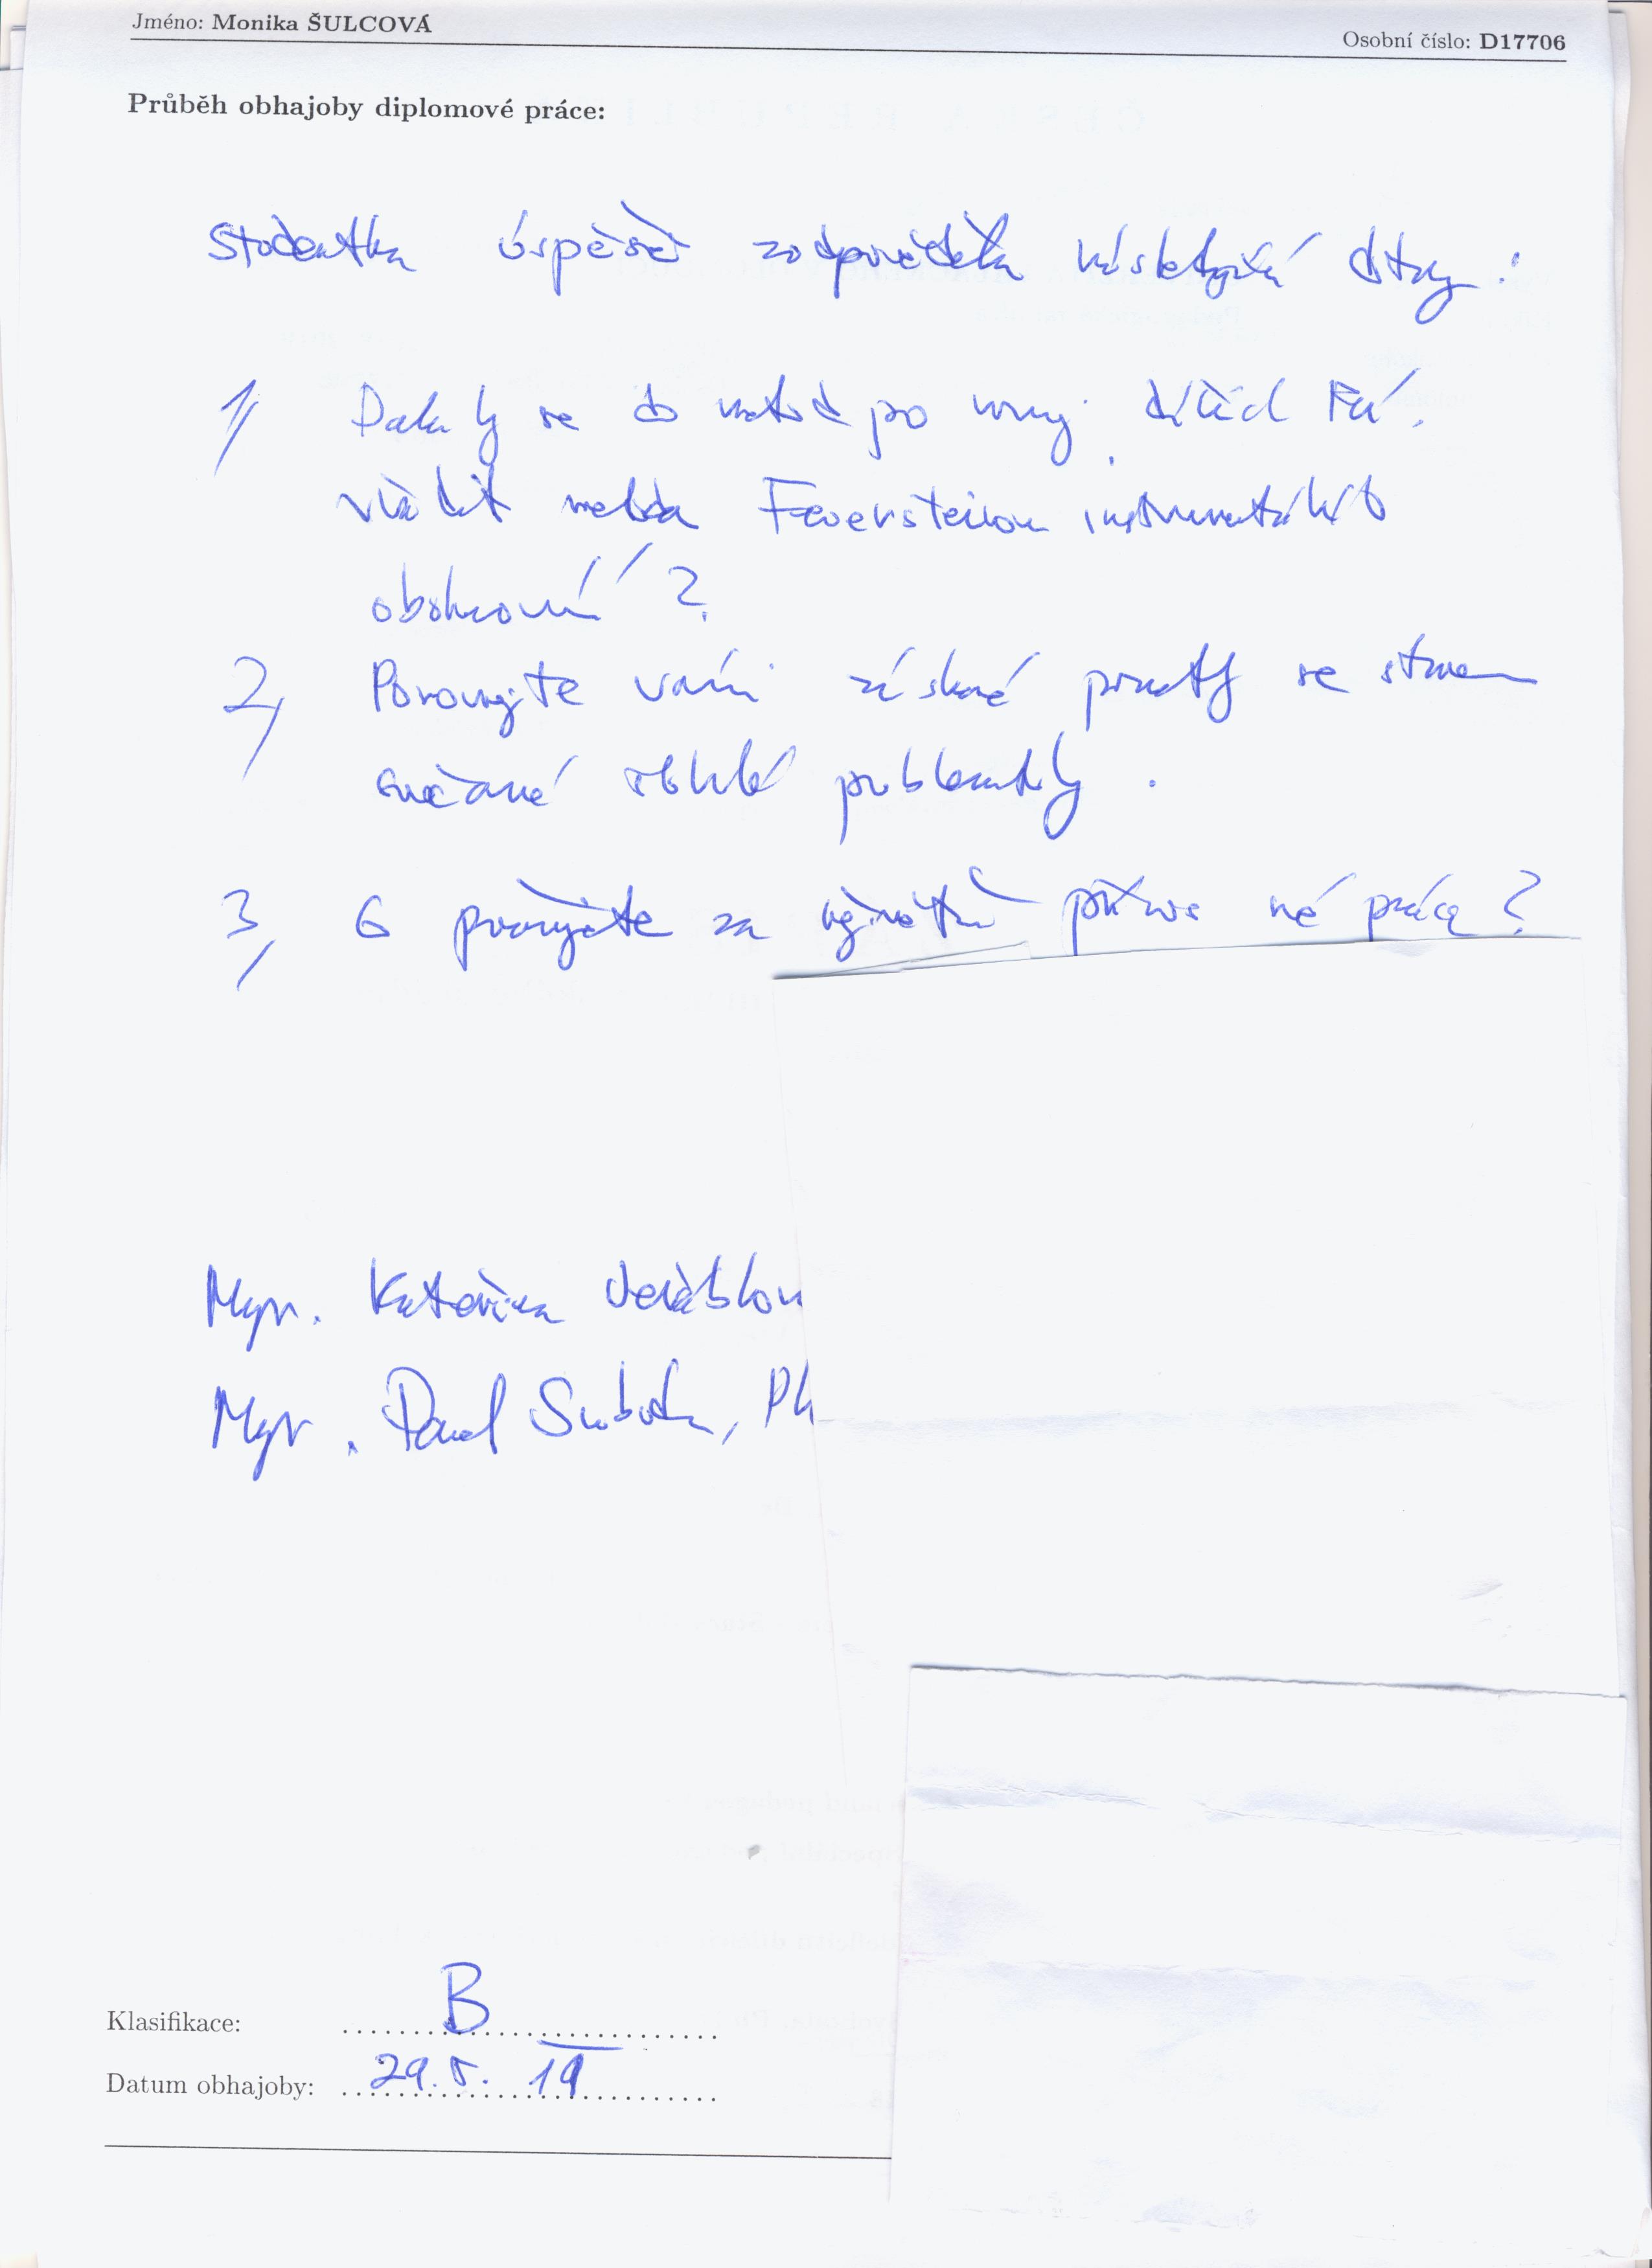 Jméno: Monika ŠULCOVÁ
Osobní číslo: D17706
Průběh obhajoby diplomové práce:
Studentka úspěšně zodpověděla následující dotazy:
1, Dala by se do metod po rozvoj dílčích
zařadit metoda Feuersteinova instrumentálního
obohacování?
2, Porovnejte vámi získané poznatky se stavem
současné problematiky.
3, Co považujete za největší přínos své práce?
Mgr. Kateřina Jeřáblov
Mgr. Pavel Svoboda, Ph
Klasifikace: B
Datum obhajoby: 29. 5. 19